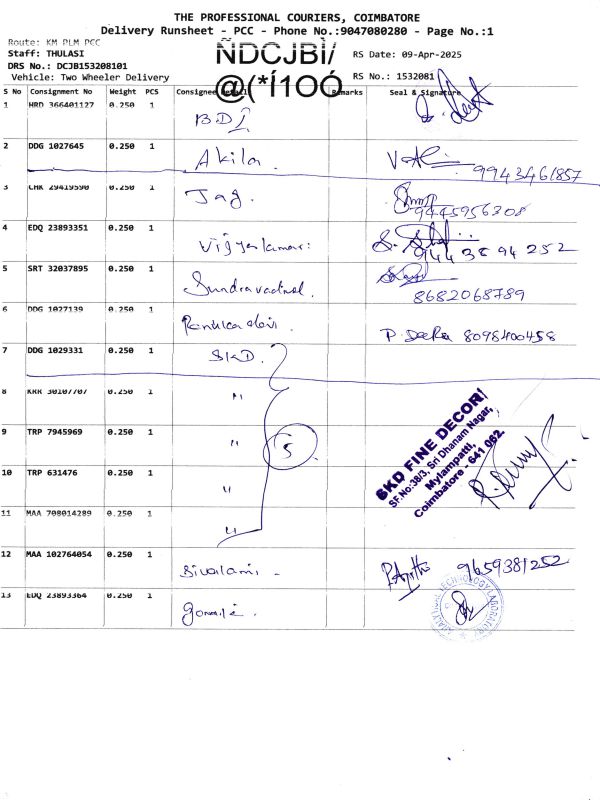 THE PROFESSIONAL COURIERS, COIMBATORE
Delivery Runsheet - PCC - Phone No.:9047080280 - Page No.:1
Route: KM PLM PCC
Staff: THULASI
DRS No.: DCJB153208101
Vehicle: Two Wheeler Delivery
ÑDCJBÌ/
@(*Í1OÓ
RS Date: 09-Apr-2025
RS No.: 1532081
S No Consignment No Weight PCS Consignee Detail Remarks Seal & Signature
1 HRD 366401127 0.250 1 BDI
2 DDG 1027645 0.250 1 Akila. 9943461857
3 CHK 29419590 0.250 1 Jag. 9445956308
4 EDQ 23893351 0.250 1 Vijyakumar: 9443894252
5 SRT 32037895 0.250 1 Sundravadivel. 8682068789
6 DDG 1027139 0.250 1 8098400458
7 DDG 1029331 0.250 1 SKD.
8 KRR 30107707 0.250 1 "
9 TRP 7945969 0.250 1 " 5
10 TRP 631476 0.250 1 "
11 MAA 708014289 0.250 1 "
SKD FINE DECOR
SF.No:38/3, Sri Dhanam Nagar,
Mylampatti,
Coimbatore - 641 062.
12 MAA 102764054 0.250 1 9659381252
13 EDQ 23893364 0.250 1